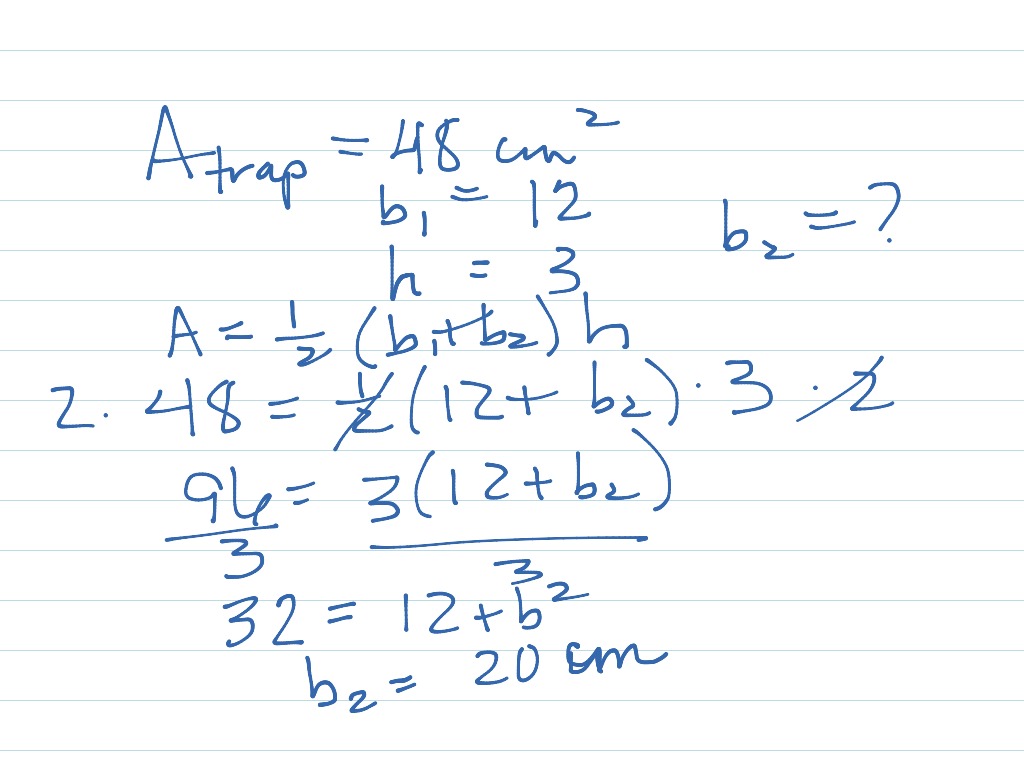 A_trap = 48 cm²
b₁ = 12
b₂ = ?
h = 3
A = 1/2 (b₁ + b₂) h
2 · 48 = 1/2 (12 + b₂) · 3 · 2
96/3 = 3(12 + b₂)/3
32 = 12 + b²
b₂ = 20 cm